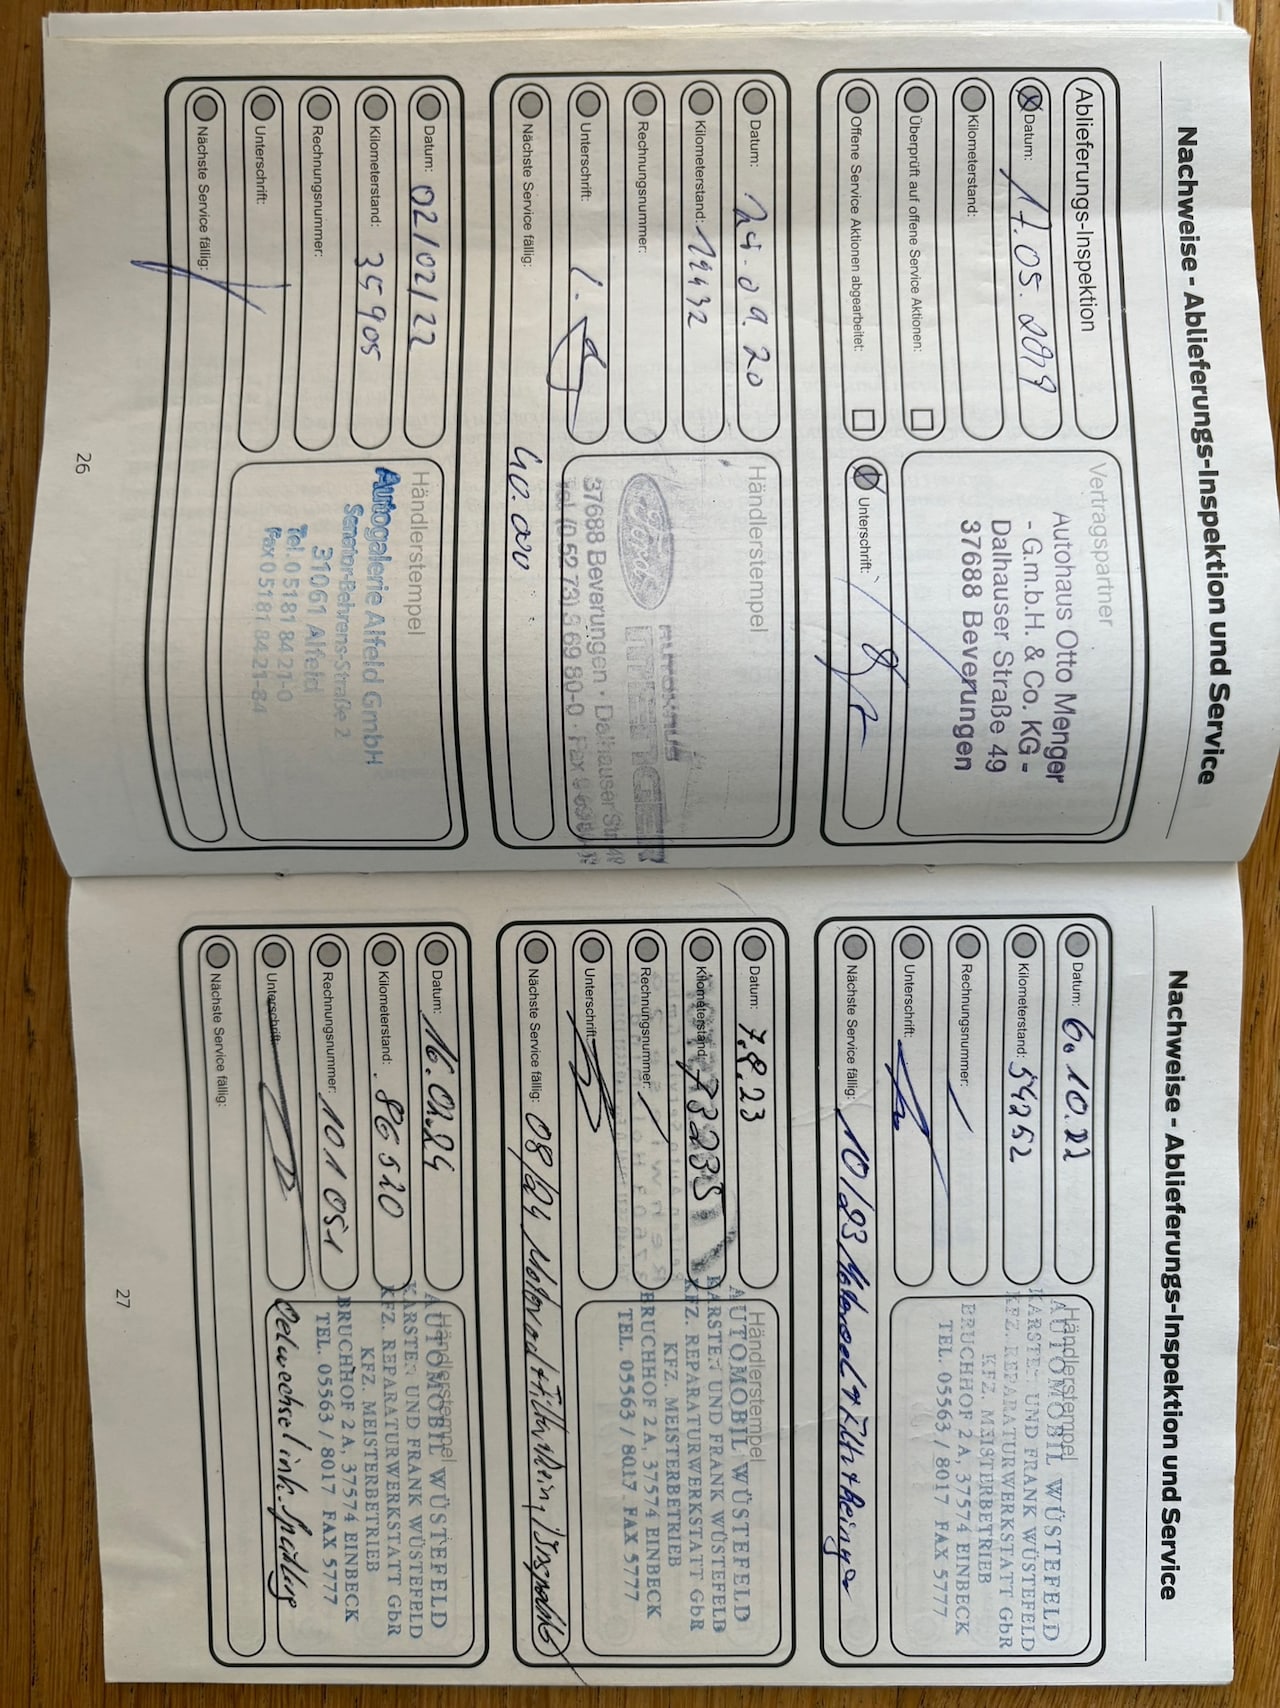 Nachweise - Ablieferungs-Inspektion und Service
Ablieferungs-Inspektion
Datum: 17.05.2019
Kilometerstand:
Überprüft auf offene Service Aktionen:
Offene Service Aktionen abgearbeitet:
Vertragspartner
Autohaus Otto Menger
- G.m.b.H. & Co. KG -
Dalhauser Straße 49
37688 Beverungen
Unterschrift:
Datum: 24.09.20
Kilometerstand: 19432
Rechnungsnummer:
Unterschrift:
Nächste Service fällig: 40.000
Händlerstempel
AUTOHAUS
MENGER
37688 Beverungen · Dalhauser Str. 49
Tel. (0 52 73) 3 69 80-0 · Fax
Datum: 02/02/22
Kilometerstand: 35905
Rechnungsnummer:
Unterschrift:
Nächste Service fällig:
Händlerstempel
Autogalerie Alfeld GmbH
Senator-Behrens-Straße 2
31061 Alfeld
Tel. 0 51 81 84 21-0
Fax 0 51 81 84 21-84
26
Nachweise - Ablieferungs-Inspektion und Service
Datum: 6.10.22
Kilometerstand: 54252
Rechnungsnummer: /
Unterschrift:
Nächste Service fällig: 10/23 Motoroel +
Händlerstempel
AUTOMOBIL WÜSTEFELD
KARSTEN UND FRANK WÜSTEFELD
KFZ. REPARATURWERKSTATT GbR
KFZ. MEISTERBETRIEB
BRUCHHOF 2 A, 37574 EINBECK
TEL. 05563 / 8017 FAX 5777
Datum: 7.8.23
Kilometerstand: 73235
Rechnungsnummer: /
Unterschrift:
Nächste Service fällig: 08/24
Händlerstempel
AUTOMOBIL WÜSTEFELD
KARSTEN UND FRANK WÜSTEFELD
KFZ. REPARATURWERKSTATT GbR
KFZ. MEISTERBETRIEB
BRUCHHOF 2 A, 37574 EINBECK
TEL. 05563 / 8017 FAX 5777
Datum: 16.02.24
Kilometerstand: 86520
Rechnungsnummer: 101051
Unterschrift:
Nächste Service fällig:
Händlerstempel
AUTOMOBIL WÜSTEFELD
KARSTEN UND FRANK WÜSTEFELD
KFZ. REPARATURWERKSTATT GbR
KFZ. MEISTERBETRIEB
BRUCHHOF 2 A, 37574 EINBECK
TEL. 05563 / 8017 FAX 5777
Oelwechsel ink. Spülung
27